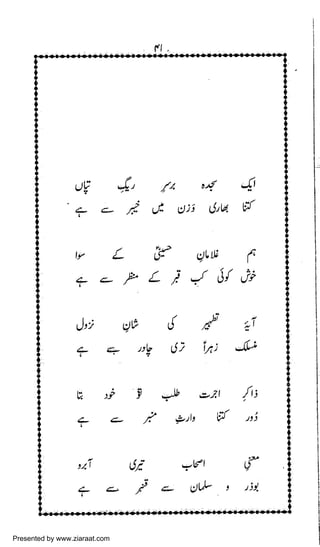 ۴۱
ایک سجدہ برسرِ ریگِ تپاں
کتنا بھاری وزن میں خیبر سے ہے
ہم غلامانِ حسینیؑ کے سوا
خوش کوئی کب قبر کے منظر سے ہے
آیۂ تطہیر کی شانِ نزول
منسلک زہراؑ تری چادر سے ہے
ذاکرِ اجرت طلب تو خود بتا
دُور کتنا وارثِ منبر سے ہے
معنیِ اصحاب تیری آبرو
بوذر و سلمان سے قنبر سے ہے
Presented by www.ziaraat.com